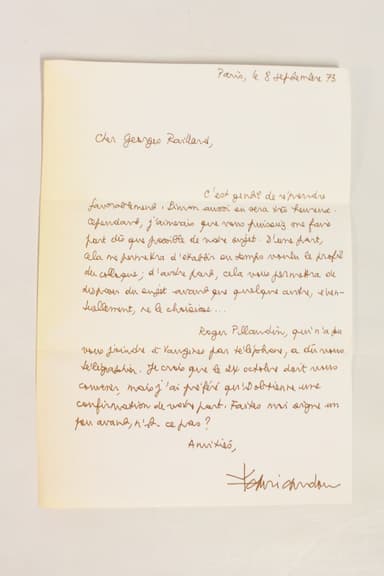 Paris, le 8 septembre 73
Cher Georges Raillard,
C'est gentil de répondre
favorablement. Simon aussi en sera très heureux.
Cependant, j'aimerais que vous puissiez me faire
part dès que possible de votre sujet. D'une part,
cela me permettra d'établir en temps voulu le profil
du colloque; d'autre part, cela vous permettra de
disposer du sujet avant que quelque autre, éven-
tuellement, ne le choisisse...
Roger Pillaudin, qui n'a pu
vous joindre à Vaugines par téléphone, a dû vous
télégraphier. Je crois que le octobre doit vous
convenir, mais j'ai préféré qu'obtienne une
confirmation de votre part. Faites-moi signe un
peu avant, n'est-ce pas?
Amitiés,